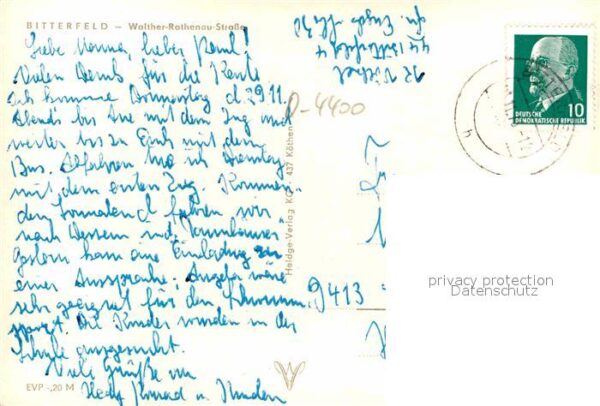 BITTERFELD — Walther-Rathenau-Straße
Liebe Mama, lieber Paul!
Vielen Dank für die Karte
ich komme Donnerstag d 29.11.
Abends bis Aue mit dem Zug und
weiter bis zu Euch mit dem
Bus. Abfahren tue ich Dienstag
mit dem ersten Zug. Kommen
den Sonnabend fahren wir
nach Dessau
Gestern kam eine Einladung zu
einer Aussprache, Angela wäre
sehr geeignet für den Schwimm
sport. Die Kinder wurden in der
Schule ausgesucht.
Viele Grüße von
Konrad u. Kinder
EVP -,20 M
Heldge-Verlag KG, 437 Köthen
44 Bitterfeld
D-4400
9413
DEUTSCHE
DEMOKRATISCHE REPUBLIK
10
privacy protection
Datenschutz